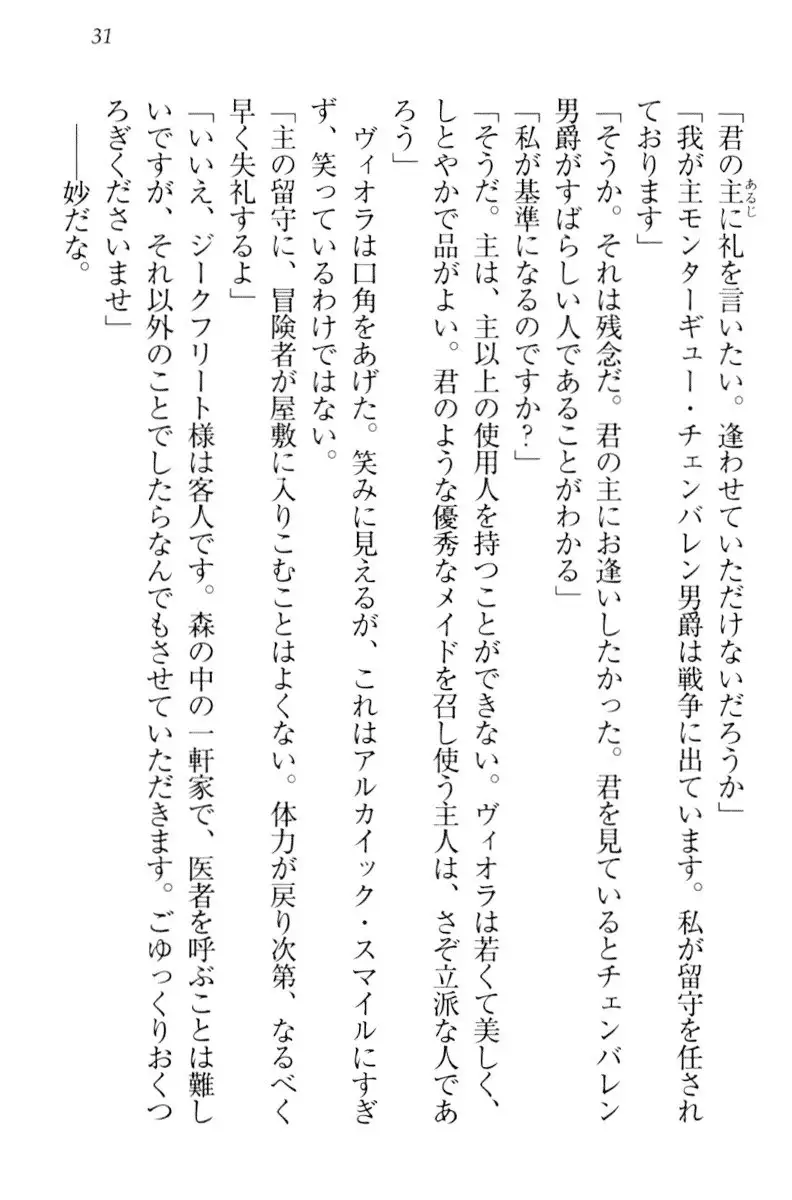 31
「君の主に礼を言いたい。逢わせていただけないだろうか」
あるじ
「我が主モンターギュー・チェンバレン男爵は戦争に出ています。私が留守を任され
ております」
「そうか。それは残念だ。君の主にお逢いしたかった。君を見ているとチェンバレン
男爵がすばらしい人であることがわかる」
「私が基準になるのですか？」
「そうだ。主は、主以上の使用人を持つことができない。ヴィオラは若くて美しく、
しとやかで品がよい。君のような優秀なメイドを召し使う主人は、さぞ立派な人であ
ろう」
ヴィオラは口角をあげた。笑みに見えるが、これはアルカイック・スマイルにすぎ
ず、笑っているわけではない。
「主の留守に、冒険者が屋敷に入りこむことはよくない。体力が戻り次第、なるべく
早く失礼するよ」
「いいえ、ジークフリート様は客人です。森の中の一軒家で、医者を呼ぶことは難し
いですが、それ以外のことでしたらなんでもさせていただきます。ごゆっくりおくつ
ろぎくださいませ」
――妙だな。